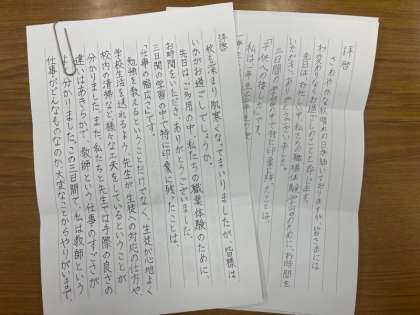 拝啓
さわやかな秋晴れの日が続いておりますが、皆さまには
お変わりなくお過ごしのことと存じます。
先日はお忙しい中私たちの職場体験学習のために、お時間を
いただきありがとうございました。
三日間の学習の中で特に印象に残ったことは、
「子供への接し方」です。
私は一年生
拝啓
秋も深まり肌寒くなってまいりましたが、皆様は
いかがお過ごしでしょうか。
先日はご多用の中、私たちの職業体験のために、
お時間をいただき、ありがとうございました。
三日間の学習の中で特に印象に残ったことは
「仕事の幅広さ」です。
勉強を教えるということだけでなく、生徒が心地よく
学校生活を送れるよう、先生が生徒への対応の仕方や、
校内の清掃など様々な工夫をしているということが
分かりました。また、私たちと先生では手際の良さの
違いはあきらかで、教師という仕事のすごさが
よく分かりました。この三日間で、私は教師という
仕事がどんなものなのか、大変なことからやりがいまで、